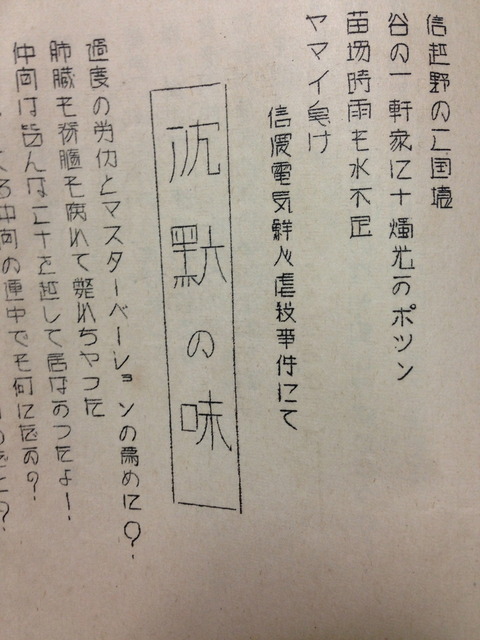 信越野の三国境
谷の一軒家に十燭光のポツン
苗場時雨も水不足
ヤマイ け
信濃電気鮮人虐殺事件にて
沈默の味
過度の労仂とマスターベーションの為めに?
肺臓も も病れて斃れちやつた
仲间は皆んな二十を越して居なかつたよ!
る仲间の連中でも何にだか?